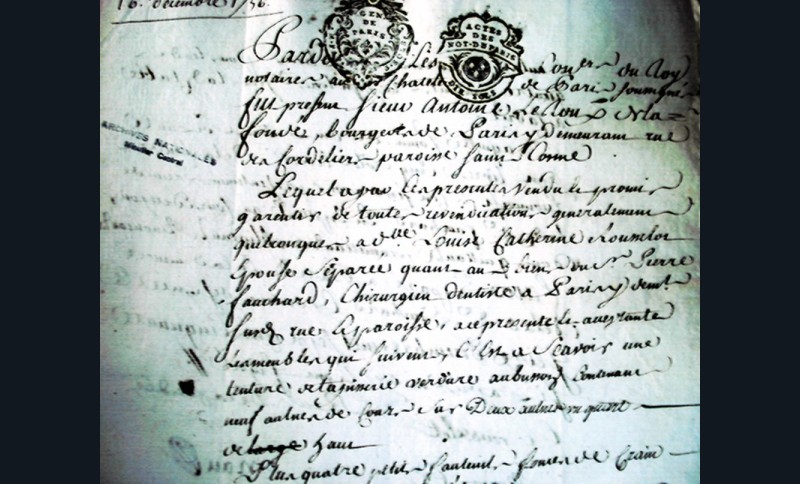 16. decembre 1736.
GEN DE PARIS
ACTES DES NOT-DE PARIS
DIX SOLS
Pardt Les Con.ers du Roy
notaires au Chatelet de Paris soussignés
fut present sieur Antoine Lellong de la
fonde, bourgeois de Paris y demeurant rue
des Cordeliers paroisse Saint Cosme
ARCHIVES NATIONALES
Minutier Central
Lequel a par les presentes vendu et promis
garentir de toutes revendications generalement
quelconques a d.lle Louise Catherine rousselot
Epouse Separée quant aux biens du S.r Pierre
fauchard, Chirurgien dentiste a Paris y dem.t
susd. rue et paroisse, a ce presente et acceptante
les meubles qui suivent, C'Est a Scavoir une
tenture de tapisserie verdure aubusson contenant
neuf aulnes de cours sur Deux aulnes un quart
de large haut
Plus quatre petits fauteuils foncés de Crain